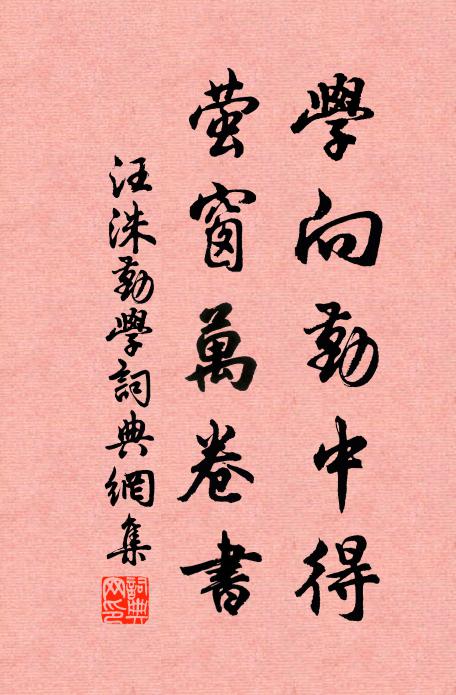 學向勤中得
螢窗萬卷書
汪洙勤學詞典網集
詞典網印